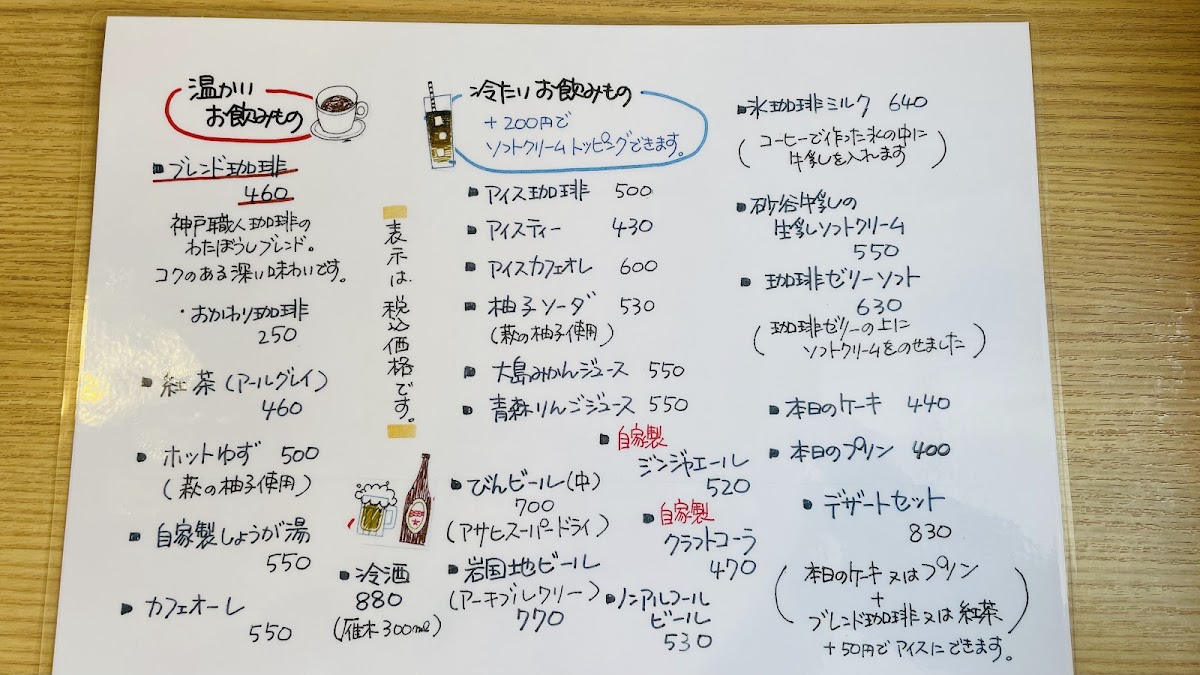 温かい
お飲みもの
■ブレンド珈琲
460
神戸職人珈琲の
わたぼうしブレンド。
コクのある深い味わいです。
・おかわり珈琲
250
■紅茶(アールグレイ)
460
■ホットゆず 500
(萩の柚子使用)
■自家製しょうが湯
550
■カフェオーレ
550
表示は税込価格です。
冷たいお飲みもの
+200円で
ソフトクリームトッピングできます。
■アイス珈琲 500
■アイスティー 430
■アイスカフェオレ 600
■柚子ソーダ 530
(萩の柚子使用)
■大島みかんジュース 550
■青森りんごジュース 550
■自家製
ジンジャエール
520
■自家製
クラフトコーラ
470
■ノンアルコール
ビール
530
■びんビール(中)
700
(アサヒスーパードライ)
■岩国地ビール
(アーキブルワリー)
770
BEER
■冷酒
880
(雁木300ml)
■氷珈琲ミルク 640
(コーヒーで作った氷の中に
牛乳を入れます)
■砂谷牛乳の
生乳ソフトクリーム
550
■珈琲ゼリーソフト
630
(珈琲ゼリーの上に
ソフトクリームをのせました)
■本日のケーキ 440
■本日のプリン 400
■デザートセット
830
(本日のケーキ又はプリン
+
ブレンド珈琲又は紅茶)
+50円でアイスにできます。